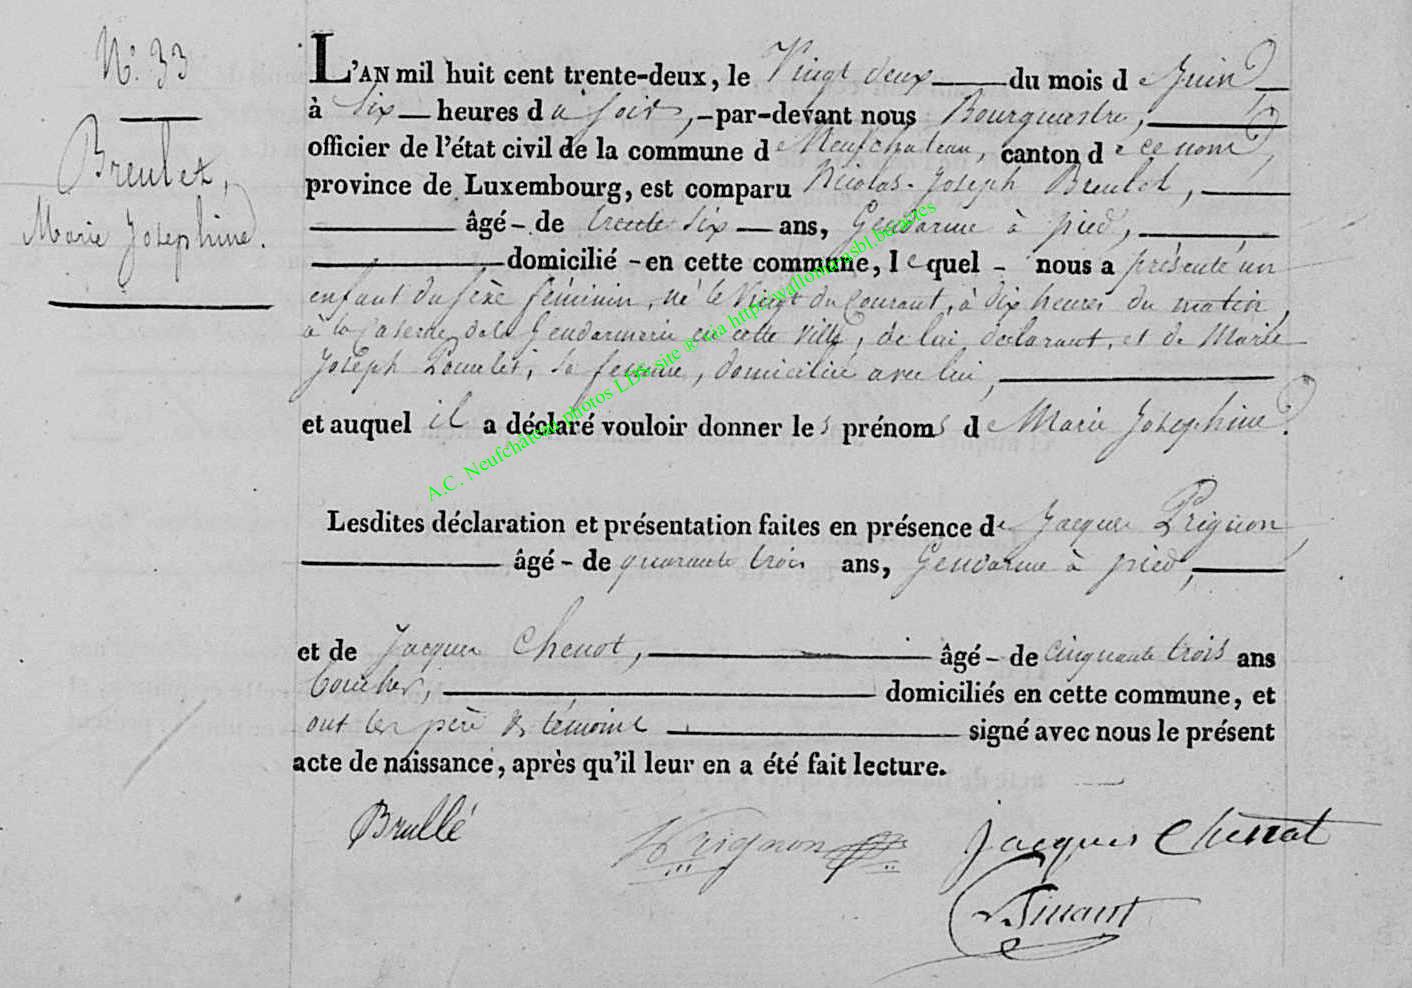 N.° 33
Breulet,
Marie Josephine.
L'AN mil huit cent trente-deux, le Vingt deux du mois de Juin
à Six heures du soir, par-devant nous Bourgmestre,
officier de l'état civil de la commune de Neufchateau, canton de ce nom,
province de Luxembourg, est comparu Nicolas-Joseph Breulet,
âgé de trente Six ans, Gendarme à pied,
domicilié en cette commune, lequel nous a présenté un
enfant du sexe féminin, né le Vingt du Courant, à dix heures du matin,
à la Caserne de la Gendarmerie en cette Ville, de lui déclarant, et de Marie
Joseph, sa femme, domiciliée avec lui,
et auquel il a déclaré vouloir donner les prénoms de Marie Josephine.
Lesdites déclaration et présentation faites en présence de Jacques Prignon,
âgé de quarante trois ans, Gendarme à pied,
et de Jacques Chenot, âgé de Cinquante trois ans
boucher, domiciliés en cette commune, et
ont les père & témoins signé avec nous le présent
acte de naissance, après qu'il leur en a été fait lecture.
Brullé Prignon Jacques Chenot
A.C. Neufchâteau photos LDS site ® via http:wallonia-asbl.be/actes